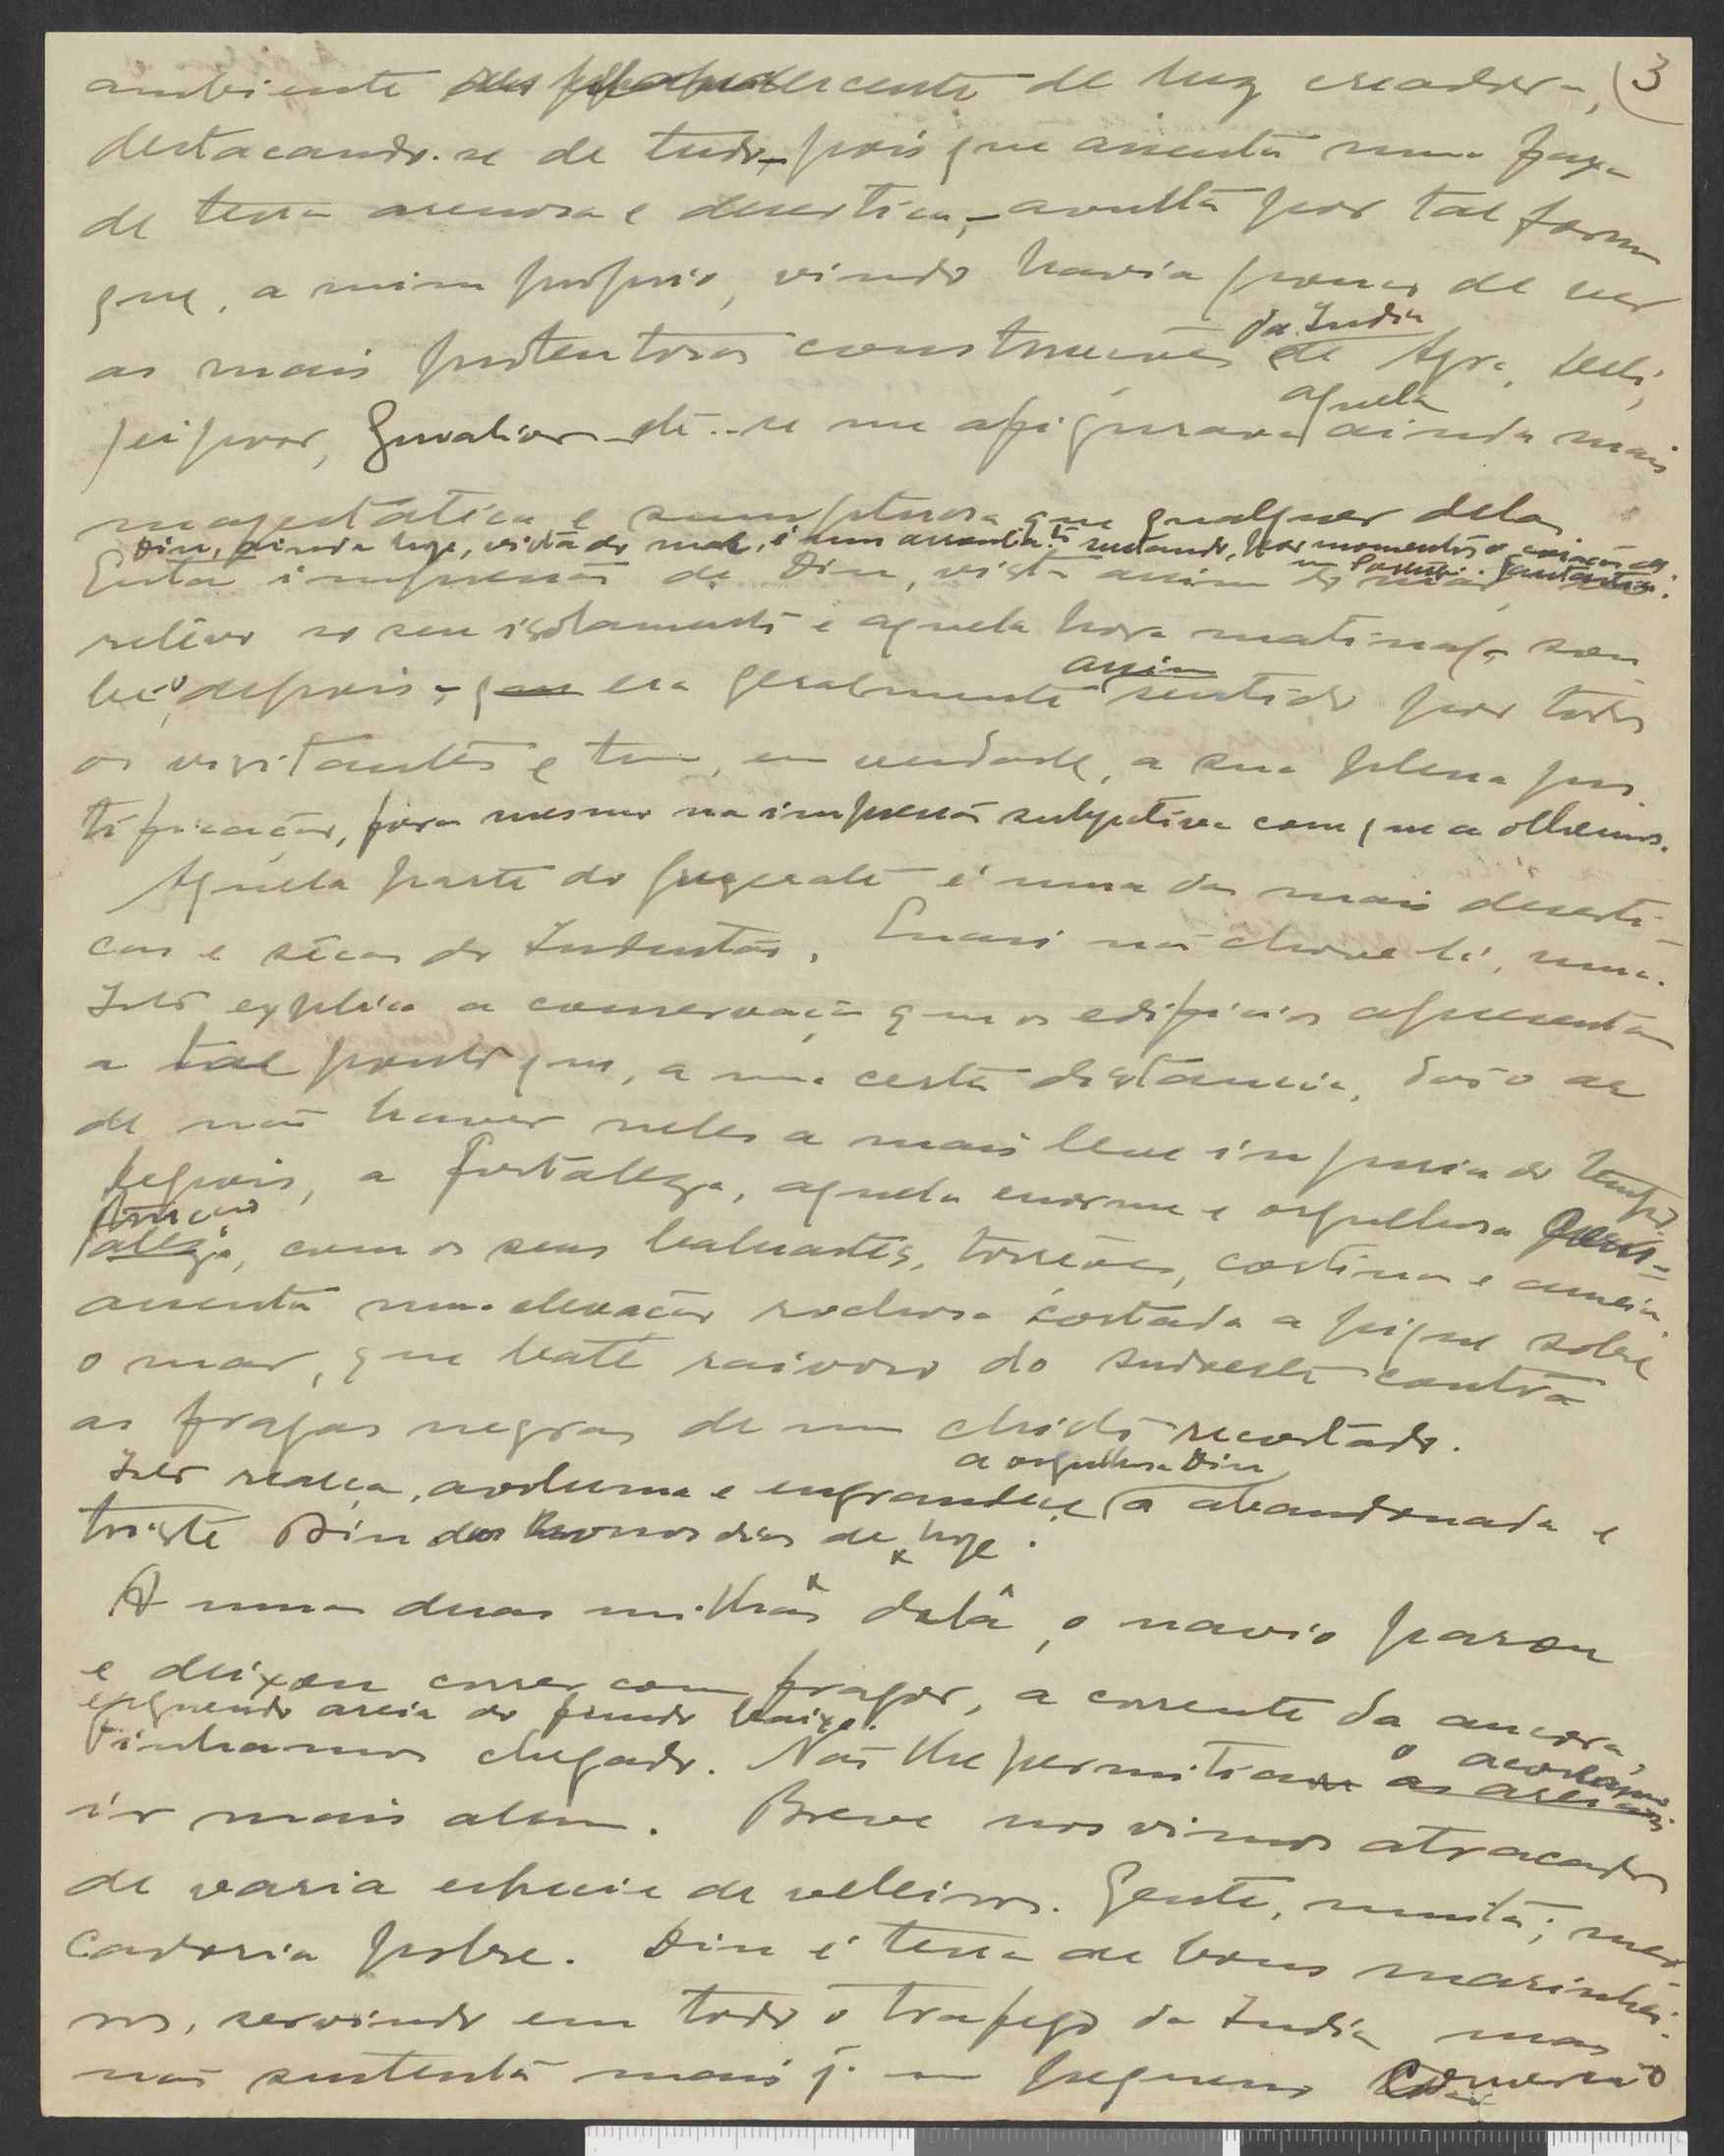 3
ambiente de luz creadora,
destacando-se de tudo - pois que assenta numa faxa
de terra arenosa e desertica, - avulta por tal forma
que, a mim proprio, vindo havia pouco de ver
as mais portentosas construcções da India de Agra, Deli,
Jeipoor, Gwalior - etc.. se me afigurava aquela ainda mais
magestática e sumptuosa que qualquer delas
Diu, ainda hoje, vista do mar, é um assombro sustando, por momentos o coração
Esta impressão de Diu, vista assim do mar,
relêvo no seu isolamento e aquela hora matinal, sou-
be-o, depois, que era geralmente assim sentido por todos
os visitantes e tem, em verdade, a sua plena jus-
tificação, fora mesmo na impressão subjectiva com que a olhamos.
Aquela parte do Guzerate é uma das mais deserti-
cas e sêcas do Indostão. Quasi não chove lá, nunca.
Isto explica a conservação que os edificios apresentam
a tal ponto que, a uma certa distancia, dão o ar
de não haver neles a mais leve injuria do tempo
Depois, a fortaleza, aquela enorme e orgulhosa
com os seus baluartes, torreões, cortinas e ameias
assenta numa elevação rochosa cortada a pique sobre
o mar, que bate raivoso do sudoeste contra
as fragas negras de um chão recortado.
Isto realça, avoluma e engrandece a orgulhosa Diu a abandonada e
triste Diu dos nossos dias de hoje.
A umas duas milhas dela, o navio parou
e deixou correr com fragor, a corrente da ancora,
erguendo areia do fundo baixo.
Tinhamos chegado. Não lhe permitiam o as areias
ir mais alem. Breve nos vimos atracados
de varia especie de veleiros. Gente, muita; mer-
cadoria pobre. Diu é terra de bons marinhei-
ros, servindo em todo o trafego da India mas
não sustenta mais q. um pequeno comercio